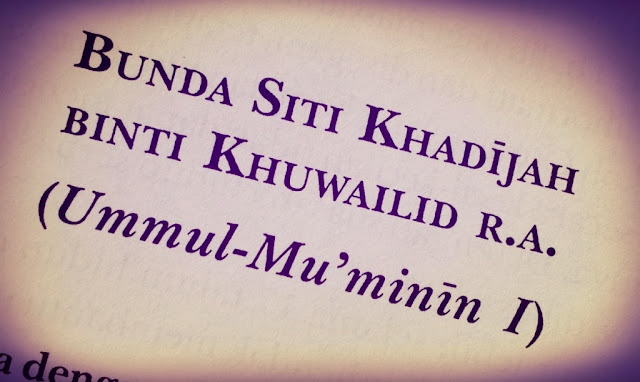 BUNDA SITI KHADĪJAH
BINTI KHUWAILID R.A.
(Ummul-Mu’minīn I)
a deng